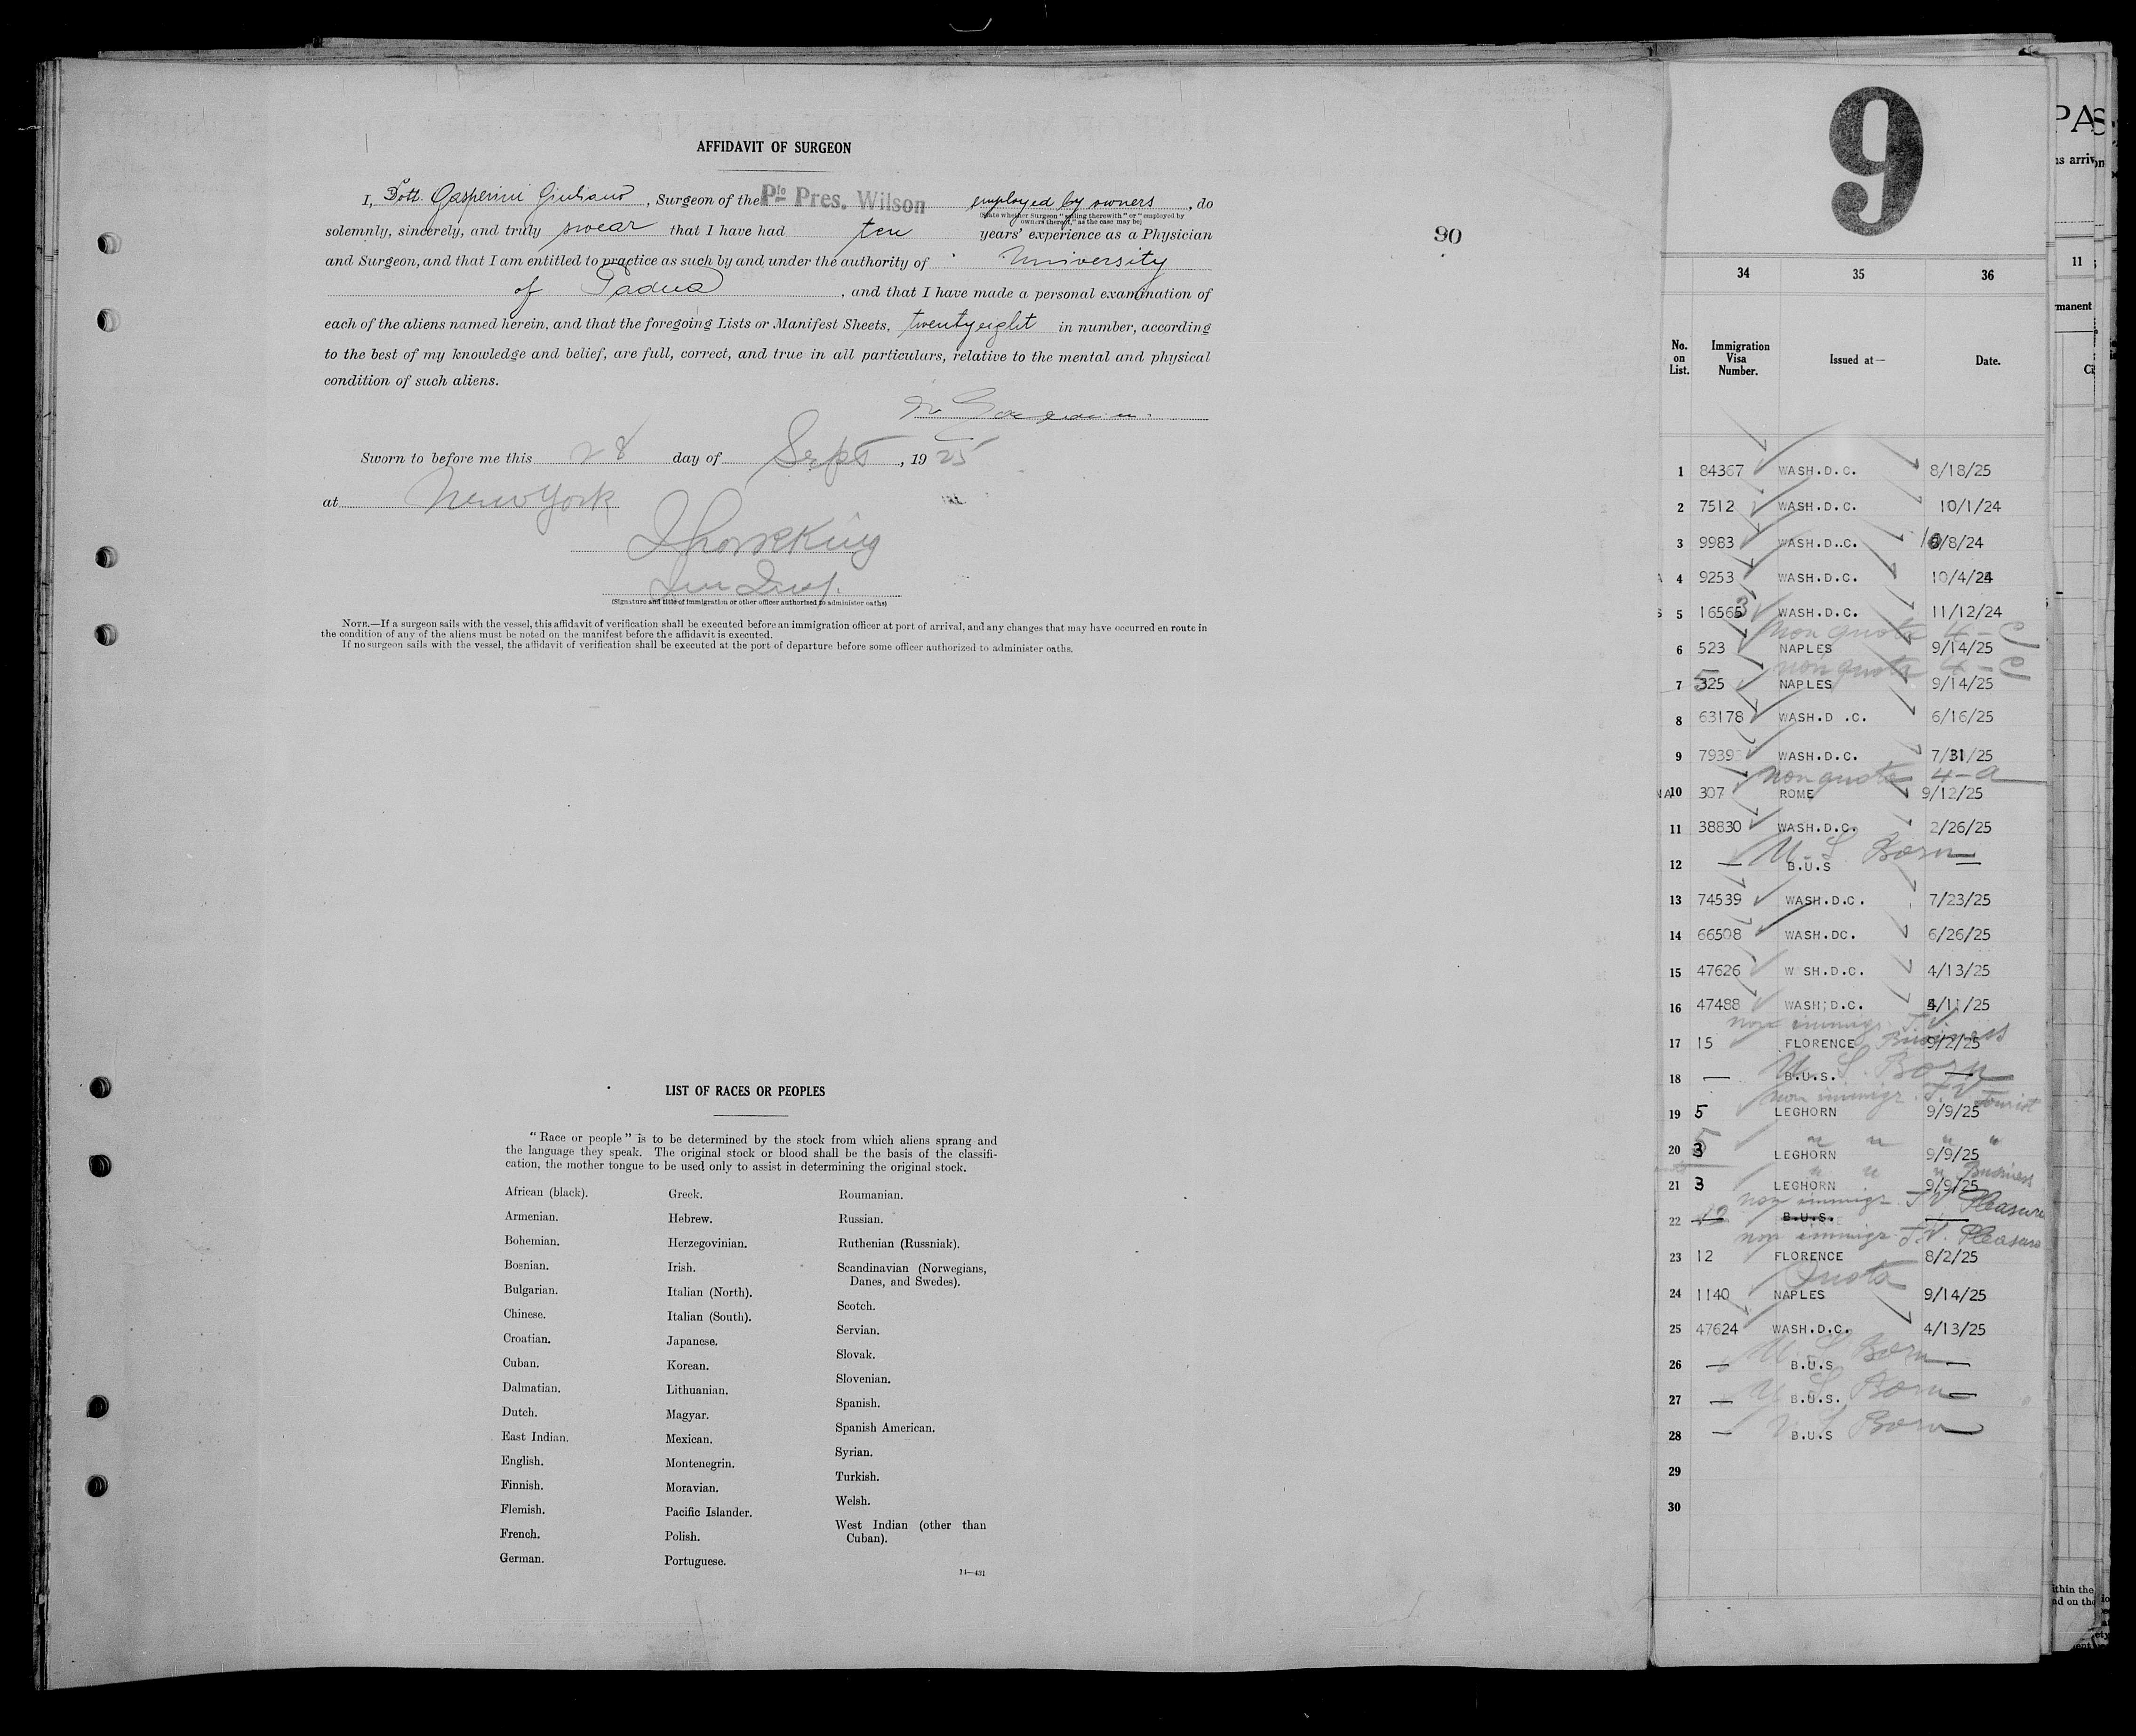 AFFIDAVIT OF SURGEON
I, Dott. Gasperini Giuliano, Surgeon of the Pfo Pres. Wilson employed by owners, do
(State whether Surgeon "sailing therewith" or "employed by
owners thereof," as the case may be)
solemnly, sincerely, and truly swear that I have had ten years' experience as a Physician
and Surgeon, and that I am entitled to practice as such by and under the authority of University
of Padua, and that I have made a personal examination of
each of the aliens named herein, and that the foregoing Lists or Manifest Sheets, twentyeight in number, according
to the best of my knowledge and belief, are full, correct, and true in all particulars, relative to the mental and physical
condition of such aliens.
Sworn to before me this 28 day of Sept, 1925
at New York
(Signature and title of immigration or other officer authorized to administer oaths)
NOTE.—If a surgeon sails with the vessel, this affidavit of verification shall be executed before an immigration officer at port of arrival, and any changes that may have occurred en route in
the condition of any of the aliens must be noted on the manifest before the affidavit is executed.
If no surgeon sails with the vessel, the affidavit of verification shall be executed at the port of departure before some officer authorized to administer oaths.
90
LIST OF RACES OR PEOPLES
"Race or people" is to be determined by the stock from which aliens sprang and
the language they speak. The original stock or blood shall be the basis of the classifi-
cation, the mother tongue to be used only to assist in determining the original stock.
African (black).
Armenian.
Bohemian.
Bosnian.
Bulgarian.
Chinese.
Croatian.
Cuban.
Dalmatian.
Dutch.
East Indian.
English.
Finnish.
Flemish.
French.
German.
Greek.
Hebrew.
Herzegovinian.
Irish.
Italian (North).
Italian (South).
Japanese.
Korean.
Lithuanian.
Magyar.
Mexican.
Montenegrin.
Moravian.
Pacific Islander.
Polish.
Portuguese.
Roumanian.
Russian.
Ruthenian (Russniak).
Scandinavian (Norwegians,
Danes, and Swedes).
Scotch.
Servian.
Slovak.
Slovenian.
Spanish.
Spanish American.
Syrian.
Turkish.
Welsh.
West Indian (other than
Cuban).
14—431
9
34 35 36
No. on List. Immigration Visa Number. Issued at— Date.
1 84367 WASH.D.C. 8/18/25
2 7512 WASH.D.C. 10/1/24
3 9983 WASH.D..C. 10/8/24
4 9253 WASH.D.C. 10/4/24
5 16563 WASH.D.C. 11/12/24
non quota 4-C
6 523 NAPLES 9/14/25
non quota 4-C
7 525 NAPLES 9/14/25
8 63178 WASH.D .C. 6/16/25
9 7939 WASH.D.C. 7/31/25
non quota 4-a
10 307 ROME 9/12/25
11 38830 WASH.D.C. 2/26/25
U.S. Born
12 — B.U.S —
13 74539 WASH.D.C. 7/23/25
14 66508 WASH.DC. 6/26/25
15 47626 W SH.D.C. 4/13/25
16 47488 WASH;D.C. 4/11/25
non immigr. T.V. Business
17 15 FLORENCE 9/2/25
U.S. Born
18 — B.U.S. —
non immigr. T.V. Tourist
19 5 LEGHORN 9/9/25
" " " "
20 3 LEGHORN 9/9/25
" " " Business
21 3 LEGHORN 9/9/25
non immigr. T.V. Pleasure
22 12 B.U.S. —
non immigr. T.V. Pleasure
23 12 FLORENCE 8/2/25
Quota
24 1140 NAPLES 9/14/25
25 47624 WASH.D.C. 4/13/25
U.S. Born
26 — B.U.S —
U.S. Born
27 — B.U.S. —
U.S. Born
28 — B.U.S —
29
30
PAS
11